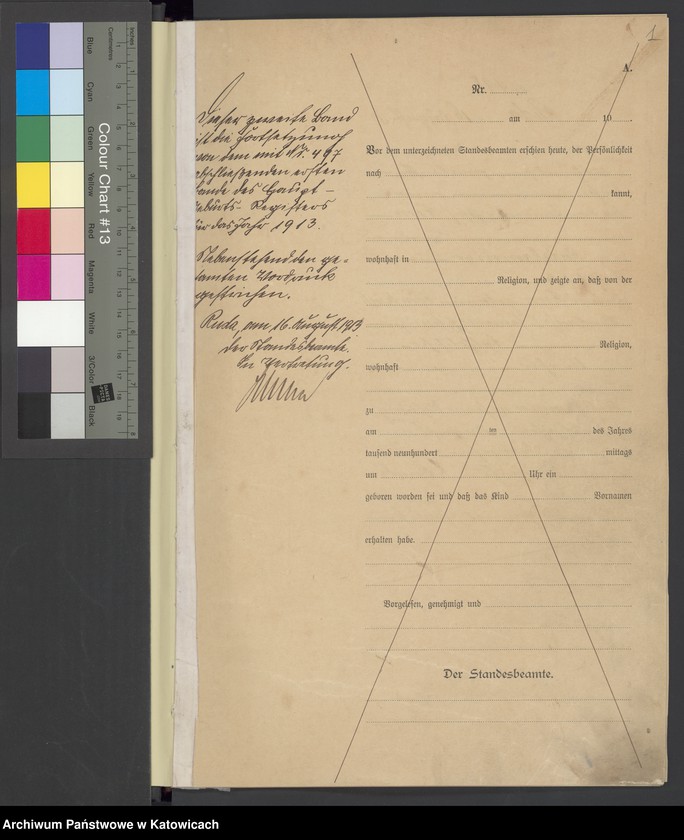 1
A.
Nr.
am 19
Vor dem unterzeichneten Standesbeamten erschien heute, der Persönlichkeit
nach
kannt,
wohnhaft in
Religion, und zeigte an, daß von der
Religion,
wohnhaft
zu
am ten des Jahres
tausend neunhundert mittags
um Uhr ein
geboren worden sei und daß das Kind Vornamen
erhalten habe.
Vorgelesen, genehmigt und
Der Standesbeamte.
Dieser zweite Band
ist die Fortsetzung
von dem mit Nr. 497
abschließenden ersten
Bande des Haupt-
Geburts-Registers
für das Jahr 1913.
Nebenstehenden ge-
samten Vordruck
gestrichen.
Ruda, am 16. August 1913
Der Standesbeamte.
In Vertretung.
Colour Chart #13
Blue
Cyan
Green
Yellow
Red
Magenta
White
3/Color
Black
Centimetres
Inches
DANES
PICTA
Archiwum Państwowe w Katowicach